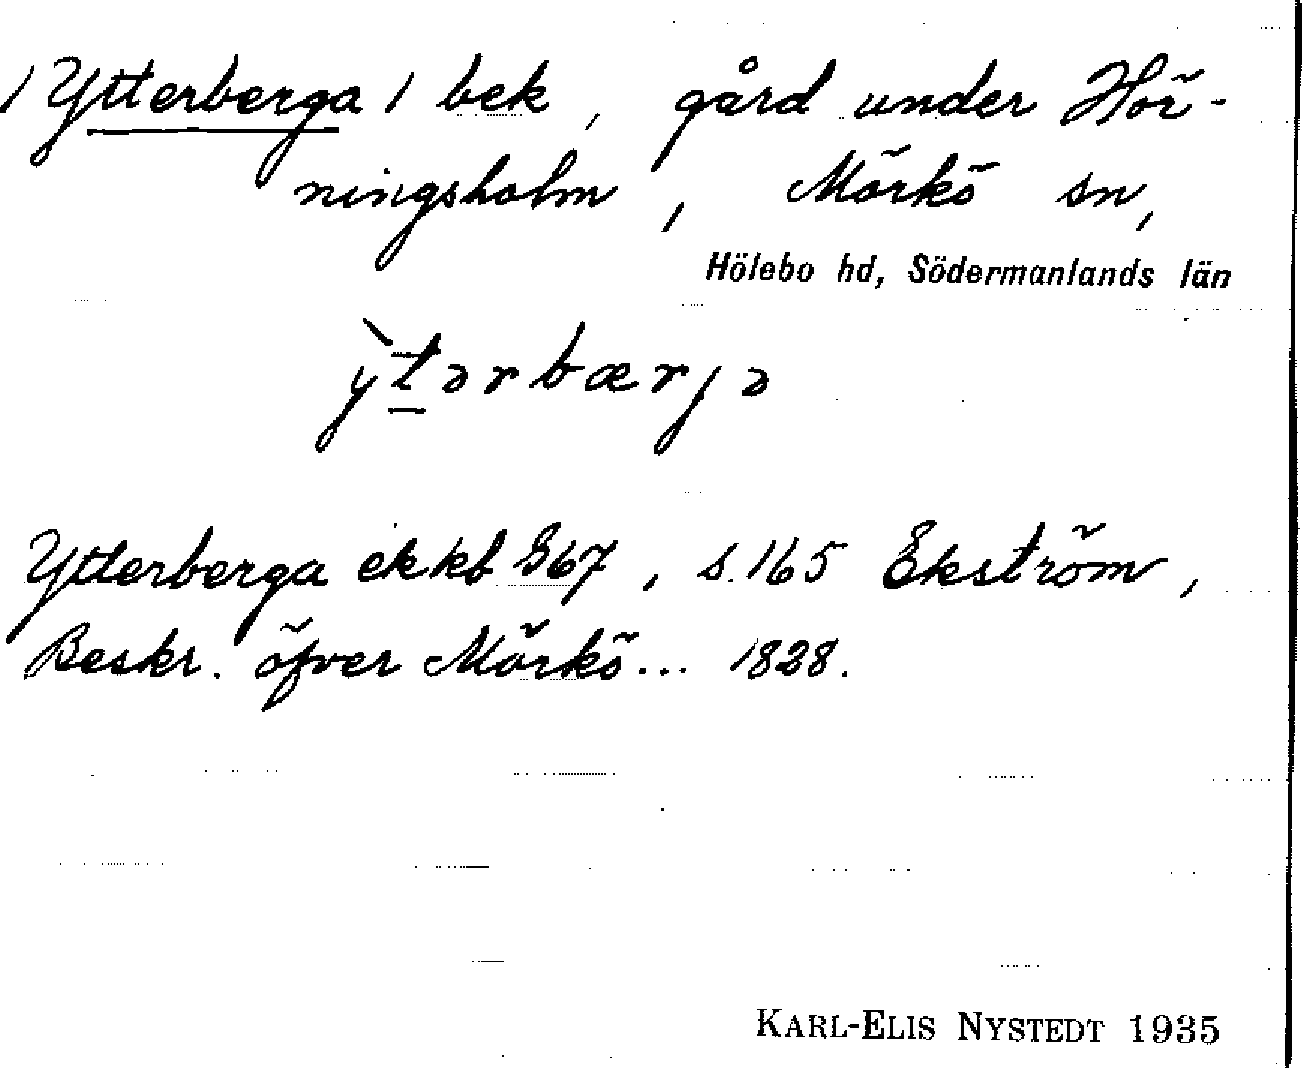 / Ytterberga / bek, gård under Hör-
ningsholm, Mörkö sn,
Hölebo hd, Södermanlands län
y̍tərbærjə
Ytterberga ekkbl 867, s. 165 Ekström,
Beskr. öfver Mörkö... 1828.
KARL-ELIS NYSTEDT 1935